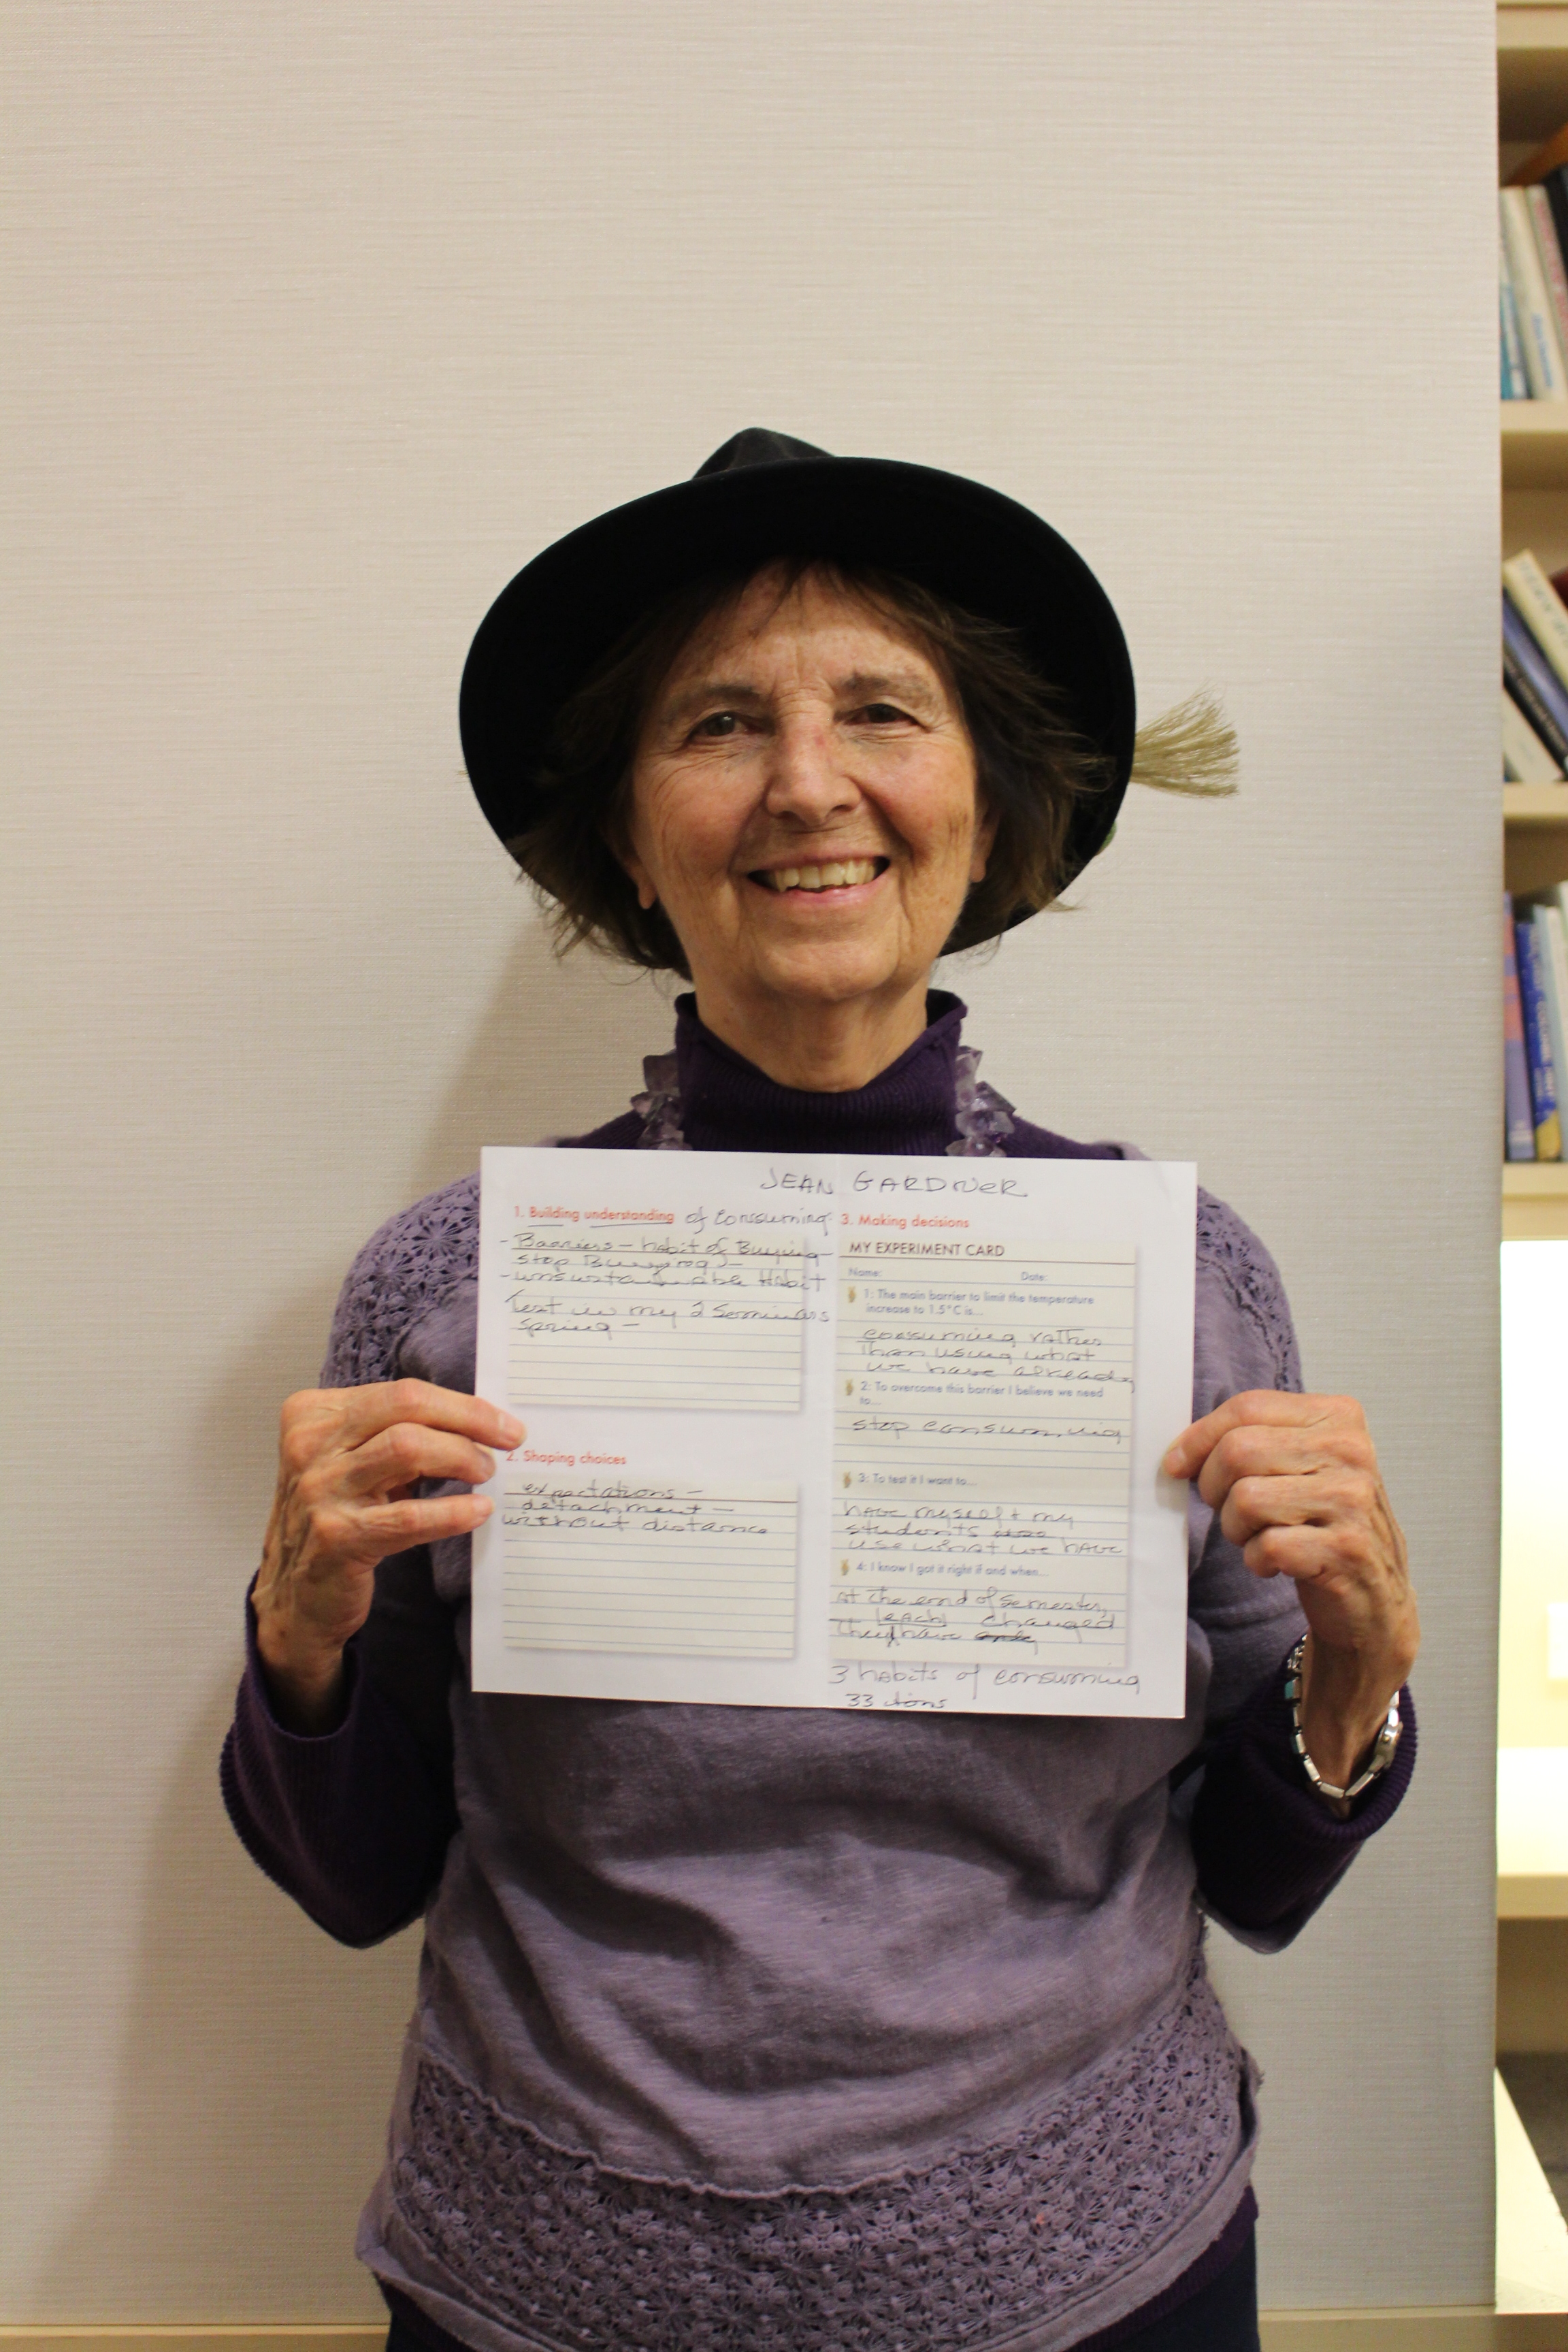 JEAN GARDNER
1. Building understanding of consuming
- Barriers - habit of Buying -
stop Buying -
- unsustainable Habit
Test in my 2 Seminars
spring -
2. Shaping choices
expectations -
detachment -
without distance
3. Making decisions
MY EXPERIMENT CARD
Name: Date:
1: The main barrier to limit the temperature
increase to 1.5°C is...
consuming rather
than using what
we have already
2: To overcome this barrier I believe we need
to...
stop consuming
3: To test it I want to...
have myself & my
students
use what we have
4: I know I got it right if and when...
at the end of semester,
each changed
they have only
3 habits of consuming
33 tons